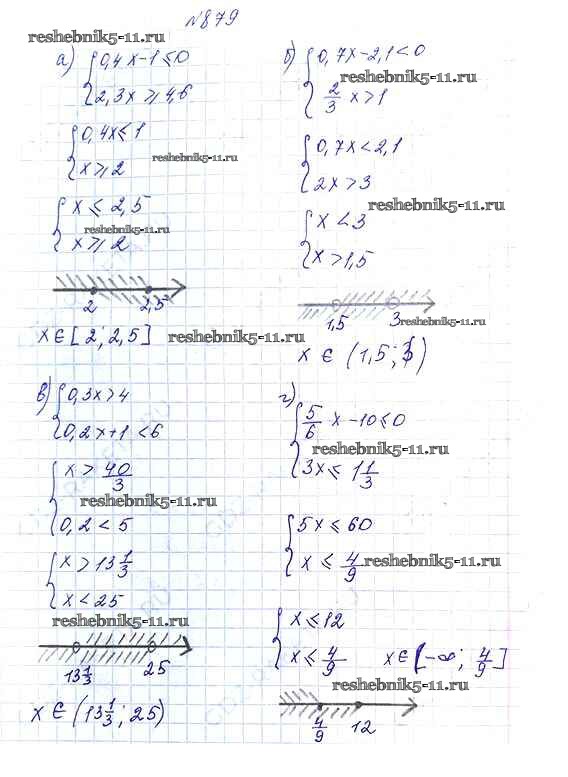 №879
reshebnik5-11.ru
а) {0,4x-1≤0
2,3x≥4,6
{0,4x≤1
x≥2
reshebnik5-11.ru
{x≤2,5
reshebnik5-11.ru
x≥2
2 2,5
x∈[2;2,5] reshebnik5-11.ru
б) {0,7x-2,1<0
reshebnik5-11.ru
2/3 x>1
{0,7x<2,1
2x>3
reshebnik5-11.ru
{x<3
x>1,5
1,5 3 reshebnik5-11.ru
x∈(1,5;3)
в) {0,3x>4
0,2x+1<6
{x>40/3
reshebnik5-11.ru
0,2<5
{x>13 1/3
x<25
reshebnik5-11.ru
13 1/3 25
x∈(13 1/3;25)
г) {5/6 x-10≤0
reshebnik5-11.ru
3x≤1 1/3
{5x≤60
x≤4/9 reshebnik5-11.ru
{x≤12
x≤4/9 x∈[-∞;4/9]
reshebnik5-11.ru
4/9 12